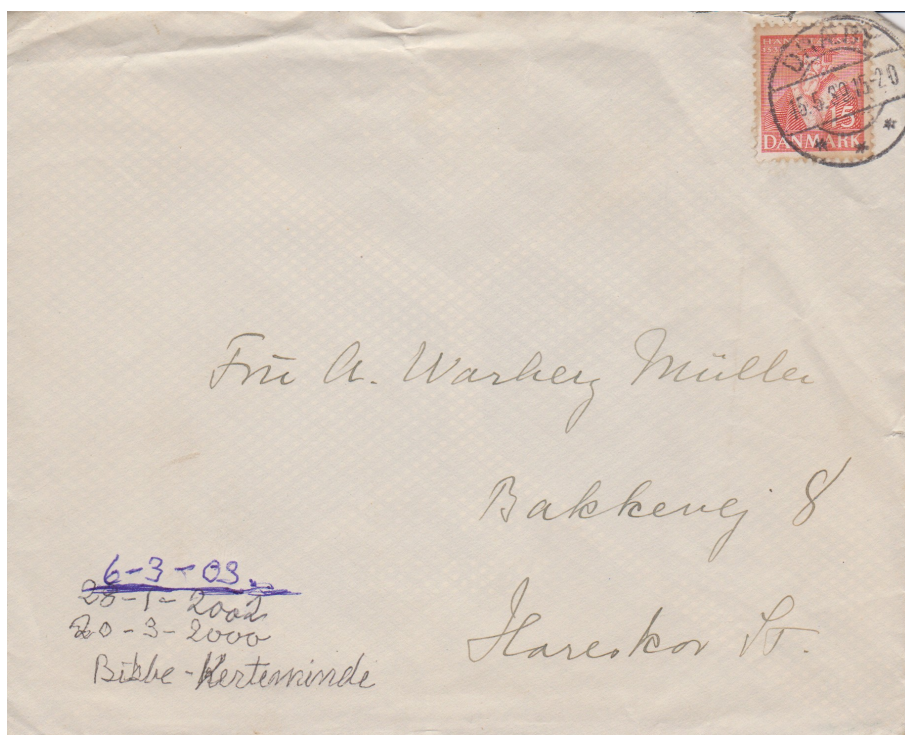 15
DANMARK
15.5.39 15-20
Fru A. Warberg Müller
Bakkevej 8
Hareskov St.
6-3-03.
28-1-2002
20-3-2000
Bibbe-Kerteminde